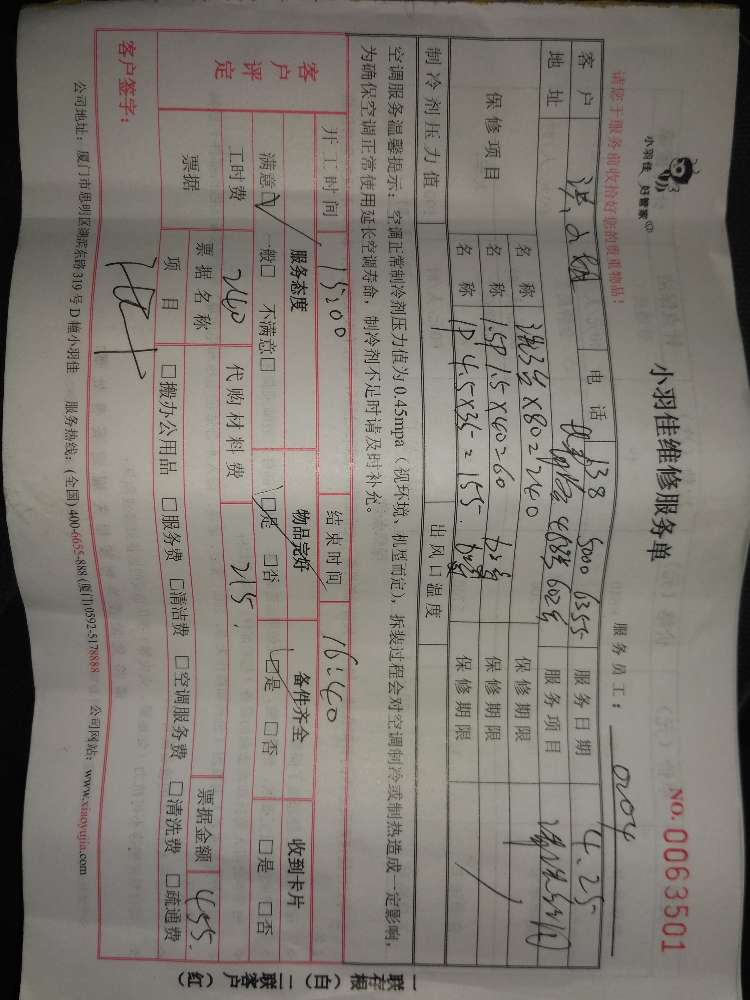 小羽佳 好管家
小羽佳维修服务单
NO. 0063501
请您于服务前收拾好您的贵重物品!
服务员工: 0204
客户 电话 138 5000 6355 服务日期 4.25
地址 602室 服务项目
保修项目 名称 洗3台×80=240 保修期限
名称 1.5P 1.5×40=60 保修期限
名称 1P 4.5×35=155. 保修期限
制冷剂压力值 出风口温度
空调服务温馨提示:空调正常制冷剂压力值为0.45mpa(视环境、机型而定),拆装过程会对空调制冷或制热造成一定影响,
为确保空调正常使用延长空调寿命,制冷剂不足时请及时补充。
开工时间 15:00 结束时间 16:40
客户评定 服务态度 物品完好 备件齐全 收到卡片
满意☑ 一般□ 不满意□ ☑是 □否 ☑是 □否 □是 □否
工时费 240 代购材料费 215.
票据 票据名称 票据金额 455.
项目 □搬办公用品 □服务费 □清洁费 □空调服务费 □清洗费 □疏通费
客户签字:
公司地址:厦门市思明区湖滨东路319号D幢小羽佳 服务热线:(全国)400-6655-888(厦门)0592-5178888 公司网站:www.xiaoyujia.com
一联存根(白)二联客户(红)